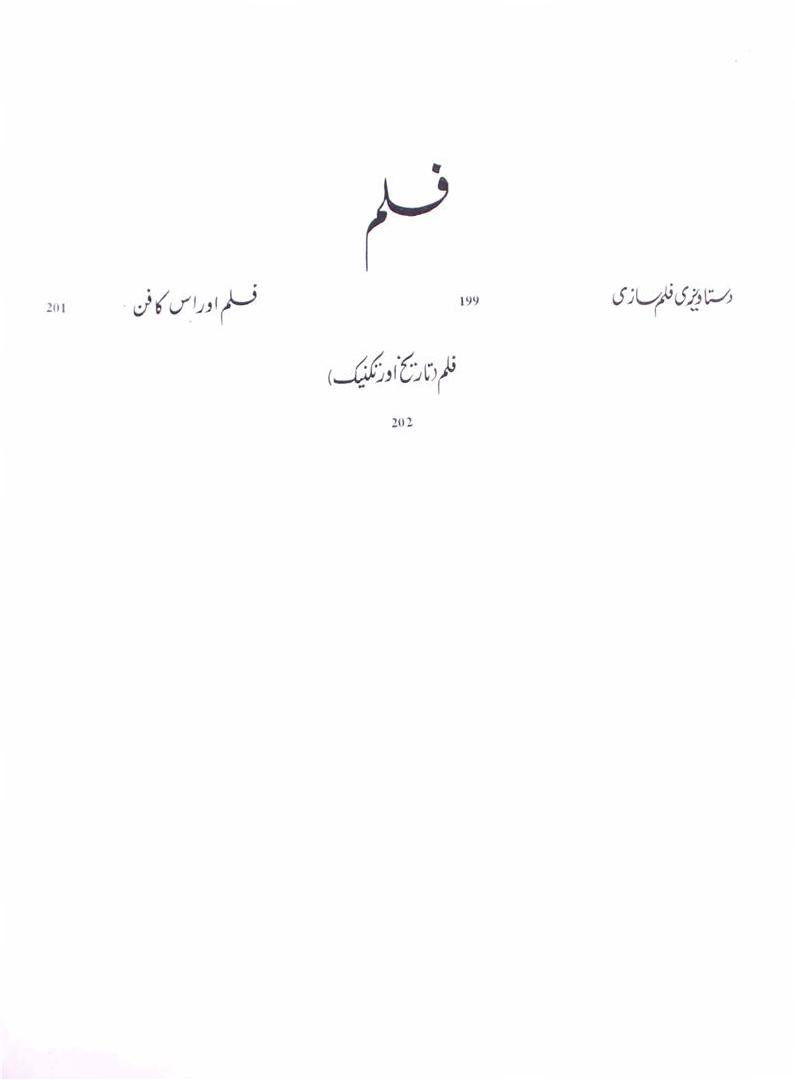 فلم
دستاویزی فلم سازی 199 فلم اور اس کا فن 201
فلم (تاریخ اور تکنیک)
202